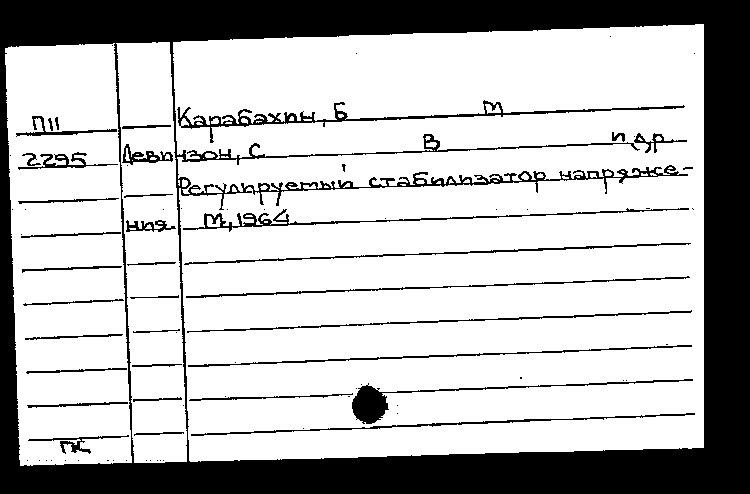 П11 Карабахин, Б М
2295 Левинзон, С В и др.
Регулируемый стабилизатор напряже-
ния. М, 1964.